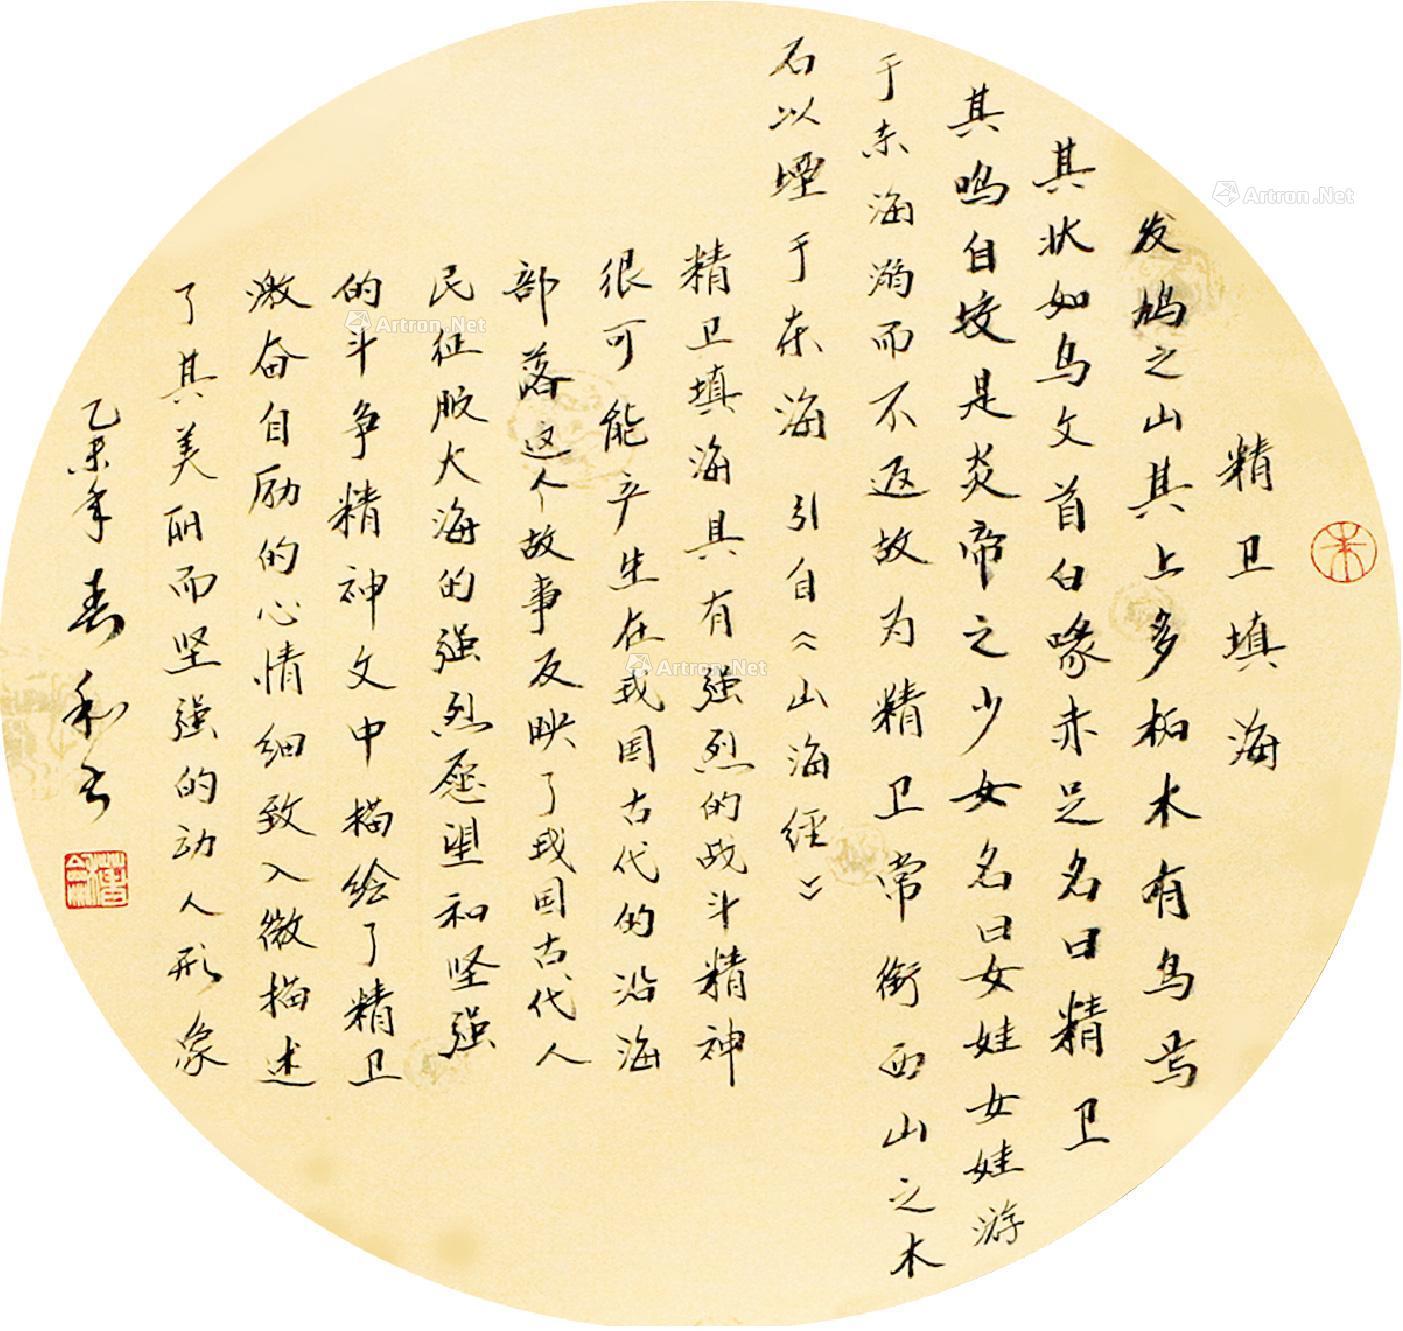 精卫填海
发鸠之山其上多柘木有鸟焉
其状如乌文首白喙赤足名曰精卫
其鸣自詨是炎帝之少女名曰女娃女娃游
于东海溺而不返故为精卫常衔西山之木
石以堙于东海 引自《山海经》
精卫填海具有强烈的战斗精神
很可能产生在我国古代的沿海
部落这个故事反映了我国古代人
民征服大海的强烈愿望和坚强
的斗争精神文中描绘了精卫
激奋自励的心情细致入微描述
了其美丽而坚强的动人形象
乙未年春和书
Artron.Net
Artron.Net
Artron.Net
Artron.Net